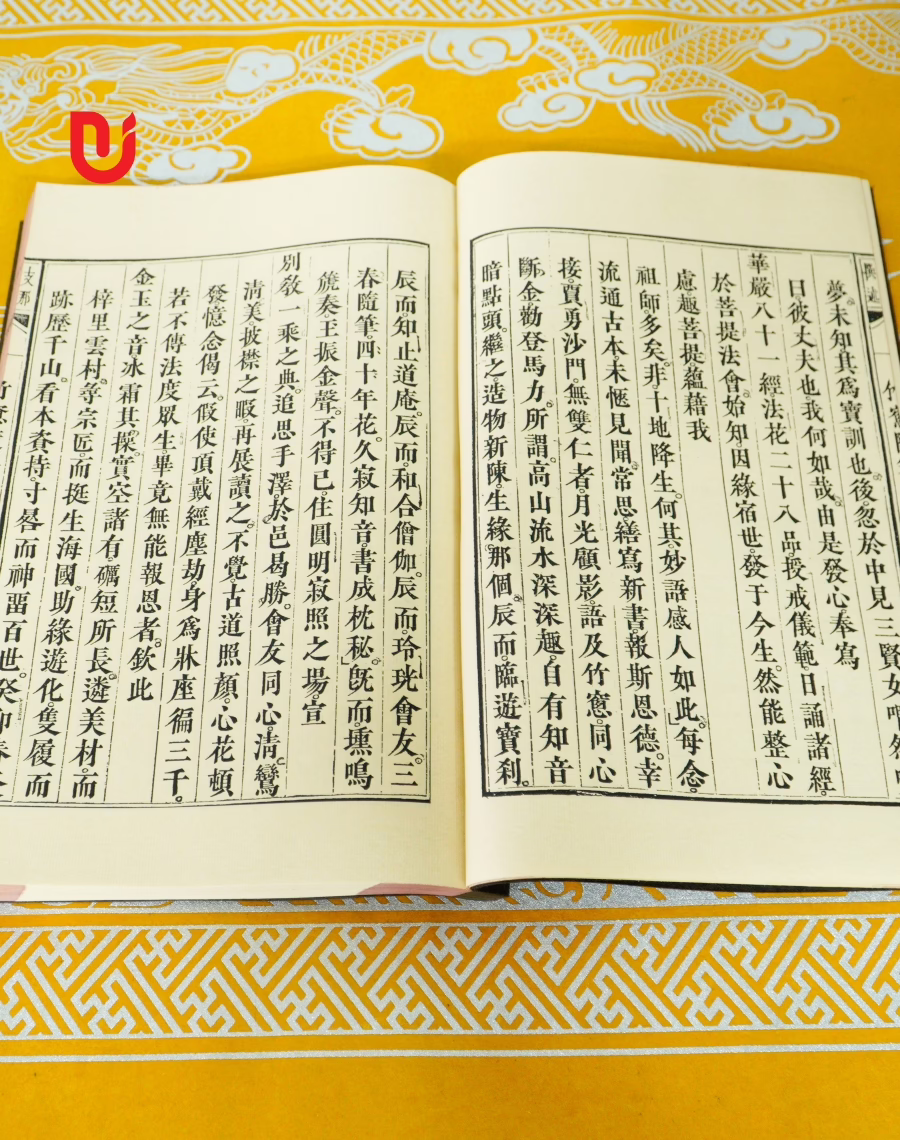 夢。未知其為寶訓也。後忽於中見三賢女喟然
曰。彼丈夫也。我何如哉。由是發心。奉寫
華嚴八十一經。法花二十八品。授戒儀範。日誦諸經。
於菩提法會。始知因緣宿世。發于今生。然能整心
慮。趣菩提。蘊藉我
祖師多矣。非十地降生。何其妙語感人如此。每念。
流通古本。未愜見聞。常思繕寫新書。報斯恩德。幸
接。賈勇沙門。無雙仁者。月光顧影。語及竹窻。同心
斷金。勸登馬力。所謂。高山流水深深趣。自有知音
暗點頭。繼之。造物新陳。生緣。那個。辰而臨。遊寶剎。
辰而知。止道庵。辰而。和合僧伽。辰而。玲珖會友。三
春隨筆。四十年花。久寂知音。書成枕秘。旣而。壎鳴
箎奏。玉振金聲。不得已。住圓明寂照之場。宣
別敎一乘之典。追思手澤。於邑曷勝。會友同心。清鸞
清美。披襟之暇。再展讀之。不覺古道照顏。心花頓
發。憶念偈云。假使頂戴經塵劫。身為牀座徧三千。
若不傳法度眾生。畢竟無能報恩者。欽此
金玉之音。冰霜其操。實空諸有。礪短所長。遴美材。而
梓里雲村。尋宗匠。而挺生海國。助緣遊化。隻履而
跡歷千山。看本賫持。寸晷而神畱百世。癸卯春